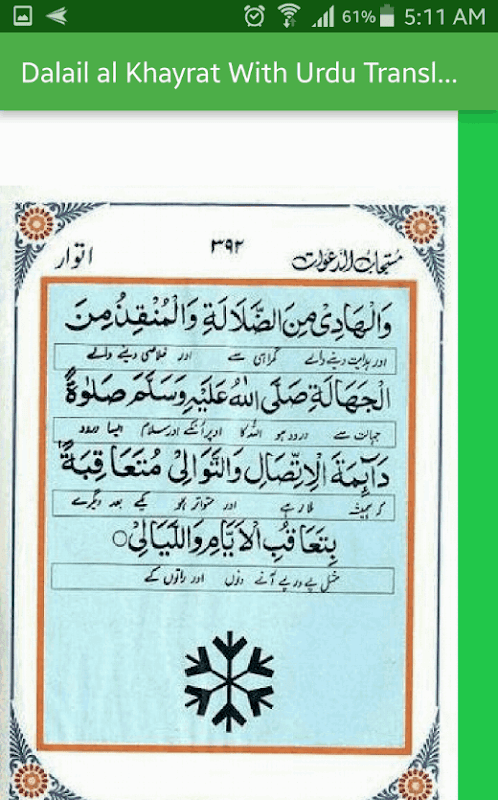 61% 5:11 AM
Dalail al Khayrat With Urdu Transl...
اتوار ۳۹۲ مستجاب الدعوات
وَالْهَادِیْ مِنَ الضَّلَالَةِ وَالْمُنْقِذُ مِنَ
اور ہدایت دینے والے گمراہی سے اور خلاصی دینے والے
الْجَهَالَةِ صَلَّی اللهُ عَلَیْهِ وَسَلَّمَ صَلٰوةً
جہالت سے درود ہو اللہ کا اوپر اُنکے اور سلام ایسا درود
دَآئِمَةَ الْاِتِّصَالِ وَالتَّوَالِیْ مُتَعَاقِبَةً
کہ ہمیشہ ملا رہے اور متواتر ہو یکے بعد دیگرے
بِتَعَاقُبِ الْاَیَّامِ وَاللَّیَالِیْ ○
مثل پے در پے آنے دنوں اور راتوں کے